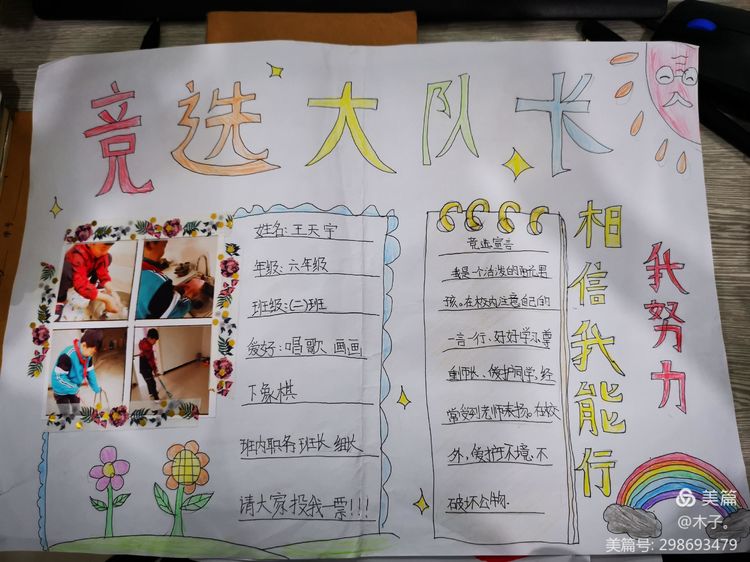 竞选大队长
姓名:王天宇
年级:六年级
班级:(二)班
爱好:唱歌 画画
下象棋
班内职务:班长 组长
请大家投我一票!!!
竞选宣言
我是一个活泼的阳光男
孩。在校内注意自己的
一言一行、好好学习、尊
重师长、爱护同学,经
常受到老师表扬。在校
外,爱护环境、不
破坏公物.
相信我能行
我努力
美篇
@木子。
美篇号: 298693479